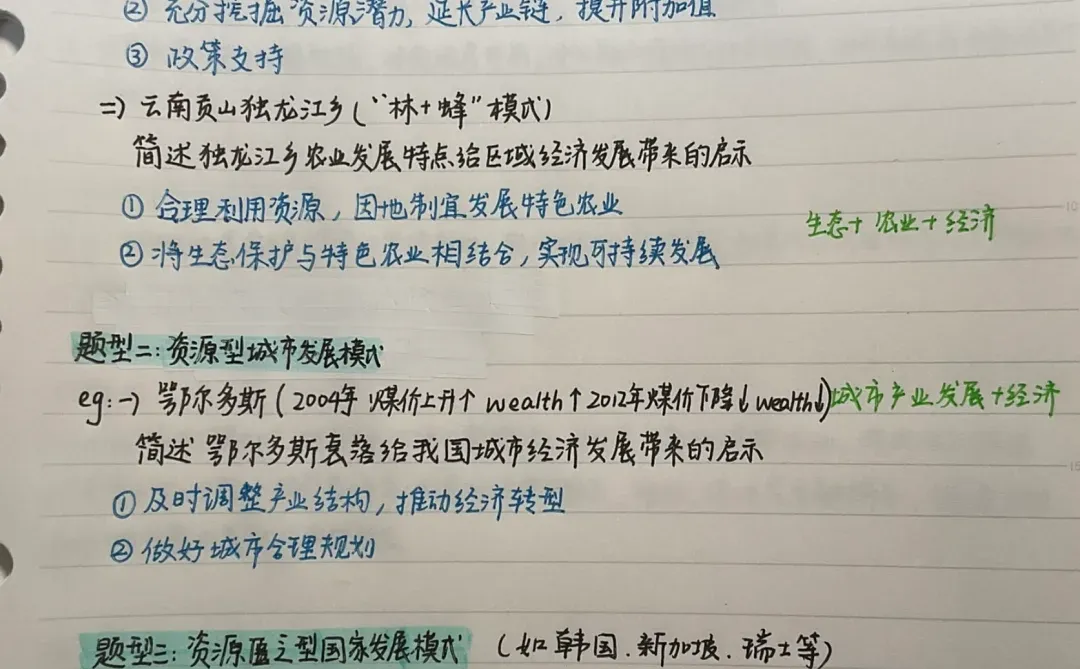 ② 充分挖掘资源潜力, 延长产业链, 提升附加值
③ 政策支持
=) 云南贡山独龙江乡 ("林+蜂"模式)
简述独龙江乡农业发展特点给区域经济发展带来的启示
① 合理利用资源, 因地制宜发展特色农业
生态+农业+经济
② 将生态保护与特色农业相结合, 实现可持续发展
题型二: 资源型城市发展模式
eg: 一) 鄂尔多斯 (2004年 煤价上升↑ wealth↑ 2012年煤价下降↓ wealth↓) 城市产业发展+经济
简述鄂尔多斯衰落给我国城市经济发展带来的启示
① 及时调整产业结构, 推动经济转型
② 做好城市合理规划
题型三: 资源匮乏型国家发展模式 (如韩国. 新加坡. 瑞士等)